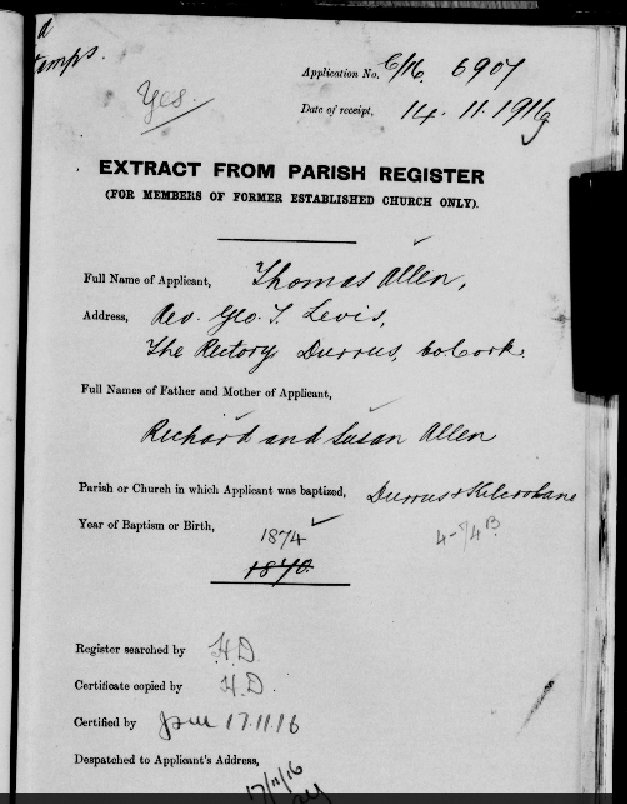 Yes.
Application No. C/16. 6907
Date of receipt, 14. 11. 1916
EXTRACT FROM PARISH REGISTER
(FOR MEMBERS OF FORMER ESTABLISHED CHURCH ONLY).
Full Name of Applicant, Thomas Allen,
Address, Rev. Geo. T. Levis,
The Rectory Durrus, Co Cork.
Full Names of Father and Mother of Applicant,
Richard and Susan Allen
Parish or Church in which Applicant was baptized, Durrus & Kilcrohane
Year of Baptism or Birth, 1874
1870
Register searched by H.D
Certificate copied by H.D.
Certified by 17.11.16
Despatched to Applicant's Address,
17/11/16